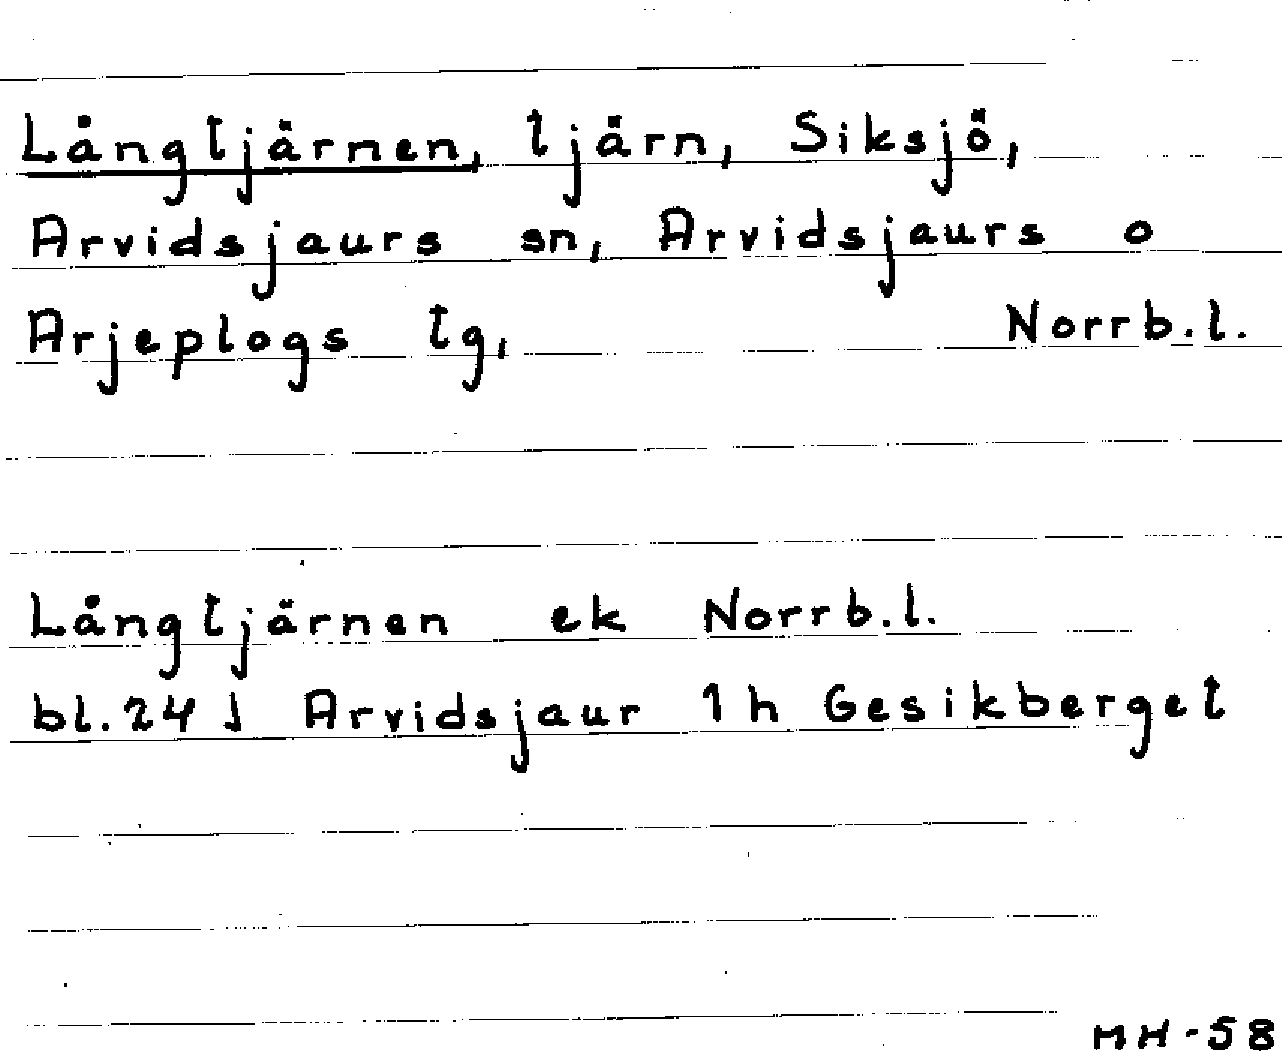 Långtjärnen, tjärn, Siksjö,
Arvidsjaurs sn, Arvidsjaurs o
Arjeplogs tg, Norrb.l.
Långtjärnen ek Norrb.l.
bl.24 J Arvidsjaur 1h Gesikberget
MH-58